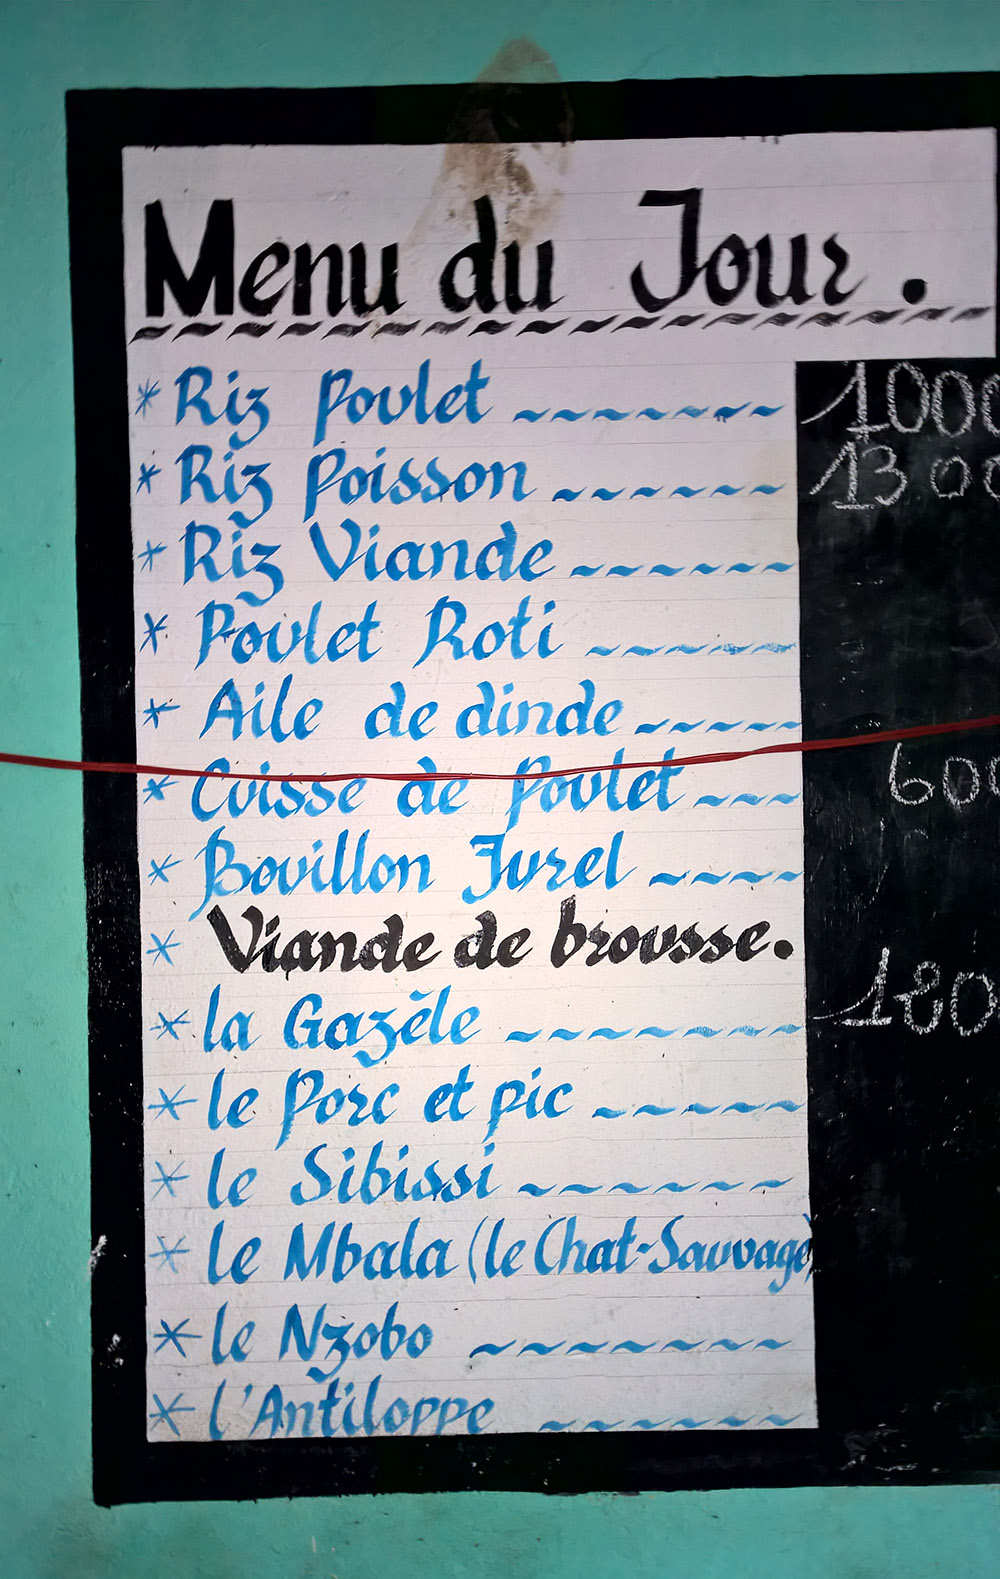 Menu du Jour.
* Riz Poulet ~~~~~~~ 1000
* Riz Poisson ~~~~~~ 1300
* Riz Viande ~~~~~~
* Poulet Roti ~~~~~~
* Aile de dinde ~~~~~
* Cuisse de Poulet ~~~ 600
* Bouillon Jurel ~~~~
* Viande de brousse.
* la Gazèle ~~~~~~~ 180
* le Porc et pic ~~~~~
* le Sibissi ~~~~~~~
* le Mbala (le Chat-Sauvage)
* le Nzobo ~~~~~~~
* l'Antiloppe ~~~~~~